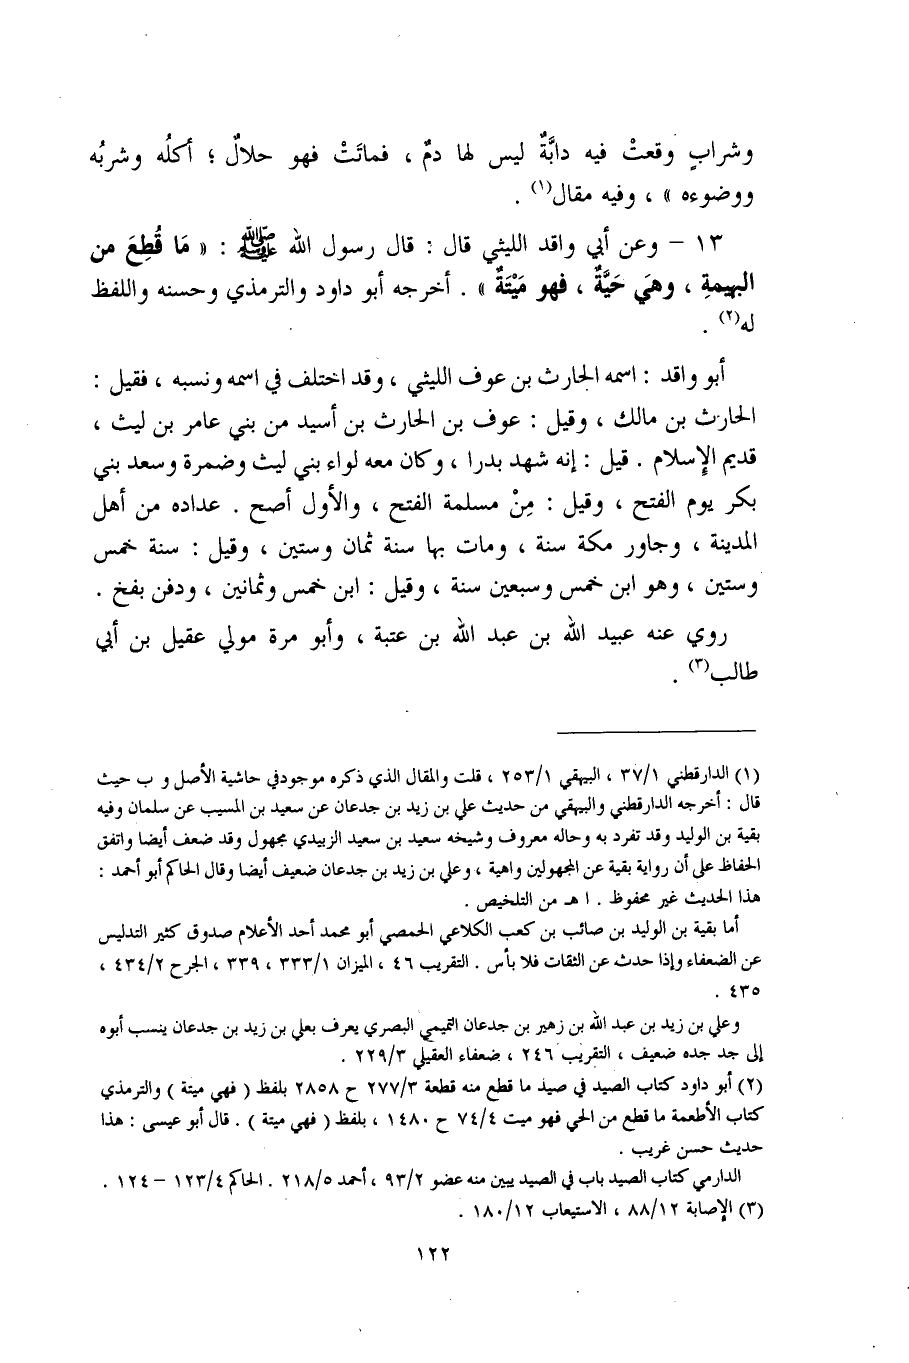 وشرابٍ وقعتْ فيه دابَّةٌ ليس لها دمٌ ، فماتَتْ فهو حلالٌ ؛ أكلُه وشربُه
ووضوءه » ، وفيه مقال(١) .
١٣ – وعن أبي واقد الليثي قال : قال رسول الله ﷺ : « مَا قُطِعَ من
البهيمةِ ، وهيَ حَيَّةٌ ، فهو مَيْتَةٌ » . أخرجه أبو داود والترمذي وحسنه واللفظ
له(٢) .
أبو واقد : اسمه الحارث بن عوف الليثي ، وقد اختلف في اسمه ونسبه ، فقيل :
الحارث بن مالك ، وقيل : عوف بن الحارث بن أسيد من بني عامر بن ليث ،
قديم الإسلام . قيل : إنه شهد بدرا ، وكان معه لواء بني ليث وضمرة وسعد بني
بكر يوم الفتح ، وقيل : مِنْ مسلمة الفتح ، والأول أصح . عداده من أهل
المدينة ، وجاور مكة سنة ، ومات بها سنة ثمان وستين ، وقيل : سنة خمس
وستين ، وهو ابن خمس وسبعين سنة ، وقيل : ابن خمس وثمانين ، ودفن بفخ .
روي عنه عبيد الله بن عبد الله بن عتبة ، وأبو مرة مولي عقيل بن أبي
طالب(٣) .
(١) الدارقطني ٣٧/١ ، البيهقي ٢٥٣/١ ، قلت والمقال الذي ذكره موجودفي حاشية الأصل و ب حيث
قال : أخرجه الدارقطني والبيهقي من حديث علي بن زيد بن جدعان عن سعيد بن المسيب عن سلمان وفيه
بقية بن الوليد وقد تفرد به وحاله معروف وشيخه سعيد بن سعيد الزبيدي مجهول وقد ضعف أيضا واتفق
الحفاظ على أن رواية بقية عن المجهولين واهية ، وعلي بن زيد بن جدعان ضعيف أيضا وقال الحاكم أبو أحمد :
هذا الحديث غير محفوظ . ا هـ من التلخيص .
أما بقية بن الوليد بن صائب بن كعب الكلاعي الحمصي أبو محمد أحد الأعلام صدوق كثير التدليس
عن الضعفاء وإذا حدث عن الثقات فلا بأس . التقريب ٤٦ ، الميزان ٣٣٣/١ ، ٣٣٩ ، الجرح ٤٣٤/٢ ،
٤٣٥ .
وعلي بن زيد بن عبد الله بن زهير بن جدعان التميمي البصري يعرف بعلي بن زيد بن جدعان ينسب أبوه
إلى جد جده ضعيف ، التقريب ٢٤٦ ، ضعفاء العقيلي ٢٢٩/٣ .
(٢) أبو داود كتاب الصيد في صيد ما قطع منه قطعة ٢٧٧/٣ ح ٢٨٥٨ بلفظ ( فهي ميتة ) والترمذي
كتاب الأطعمة ما قطع من الحي فهو ميت ٧٤/٤ ح ١٤٨٠ ، بلفظ ( فهي ميتة ) . قال أبو عيسى : هذا
حديث حسن غريب .
الدارمي كتاب الصيد باب في الصيد يبين منه عضو ٩٣/٢ ، أحمد ٢١٨/٥ . الحاكم ١٢٣/٤ – ١٢٤ .
(٣) الإصابة ٨٨/١٢ ، الاستيعاب ١٨٠/١٢ .
١٢٢